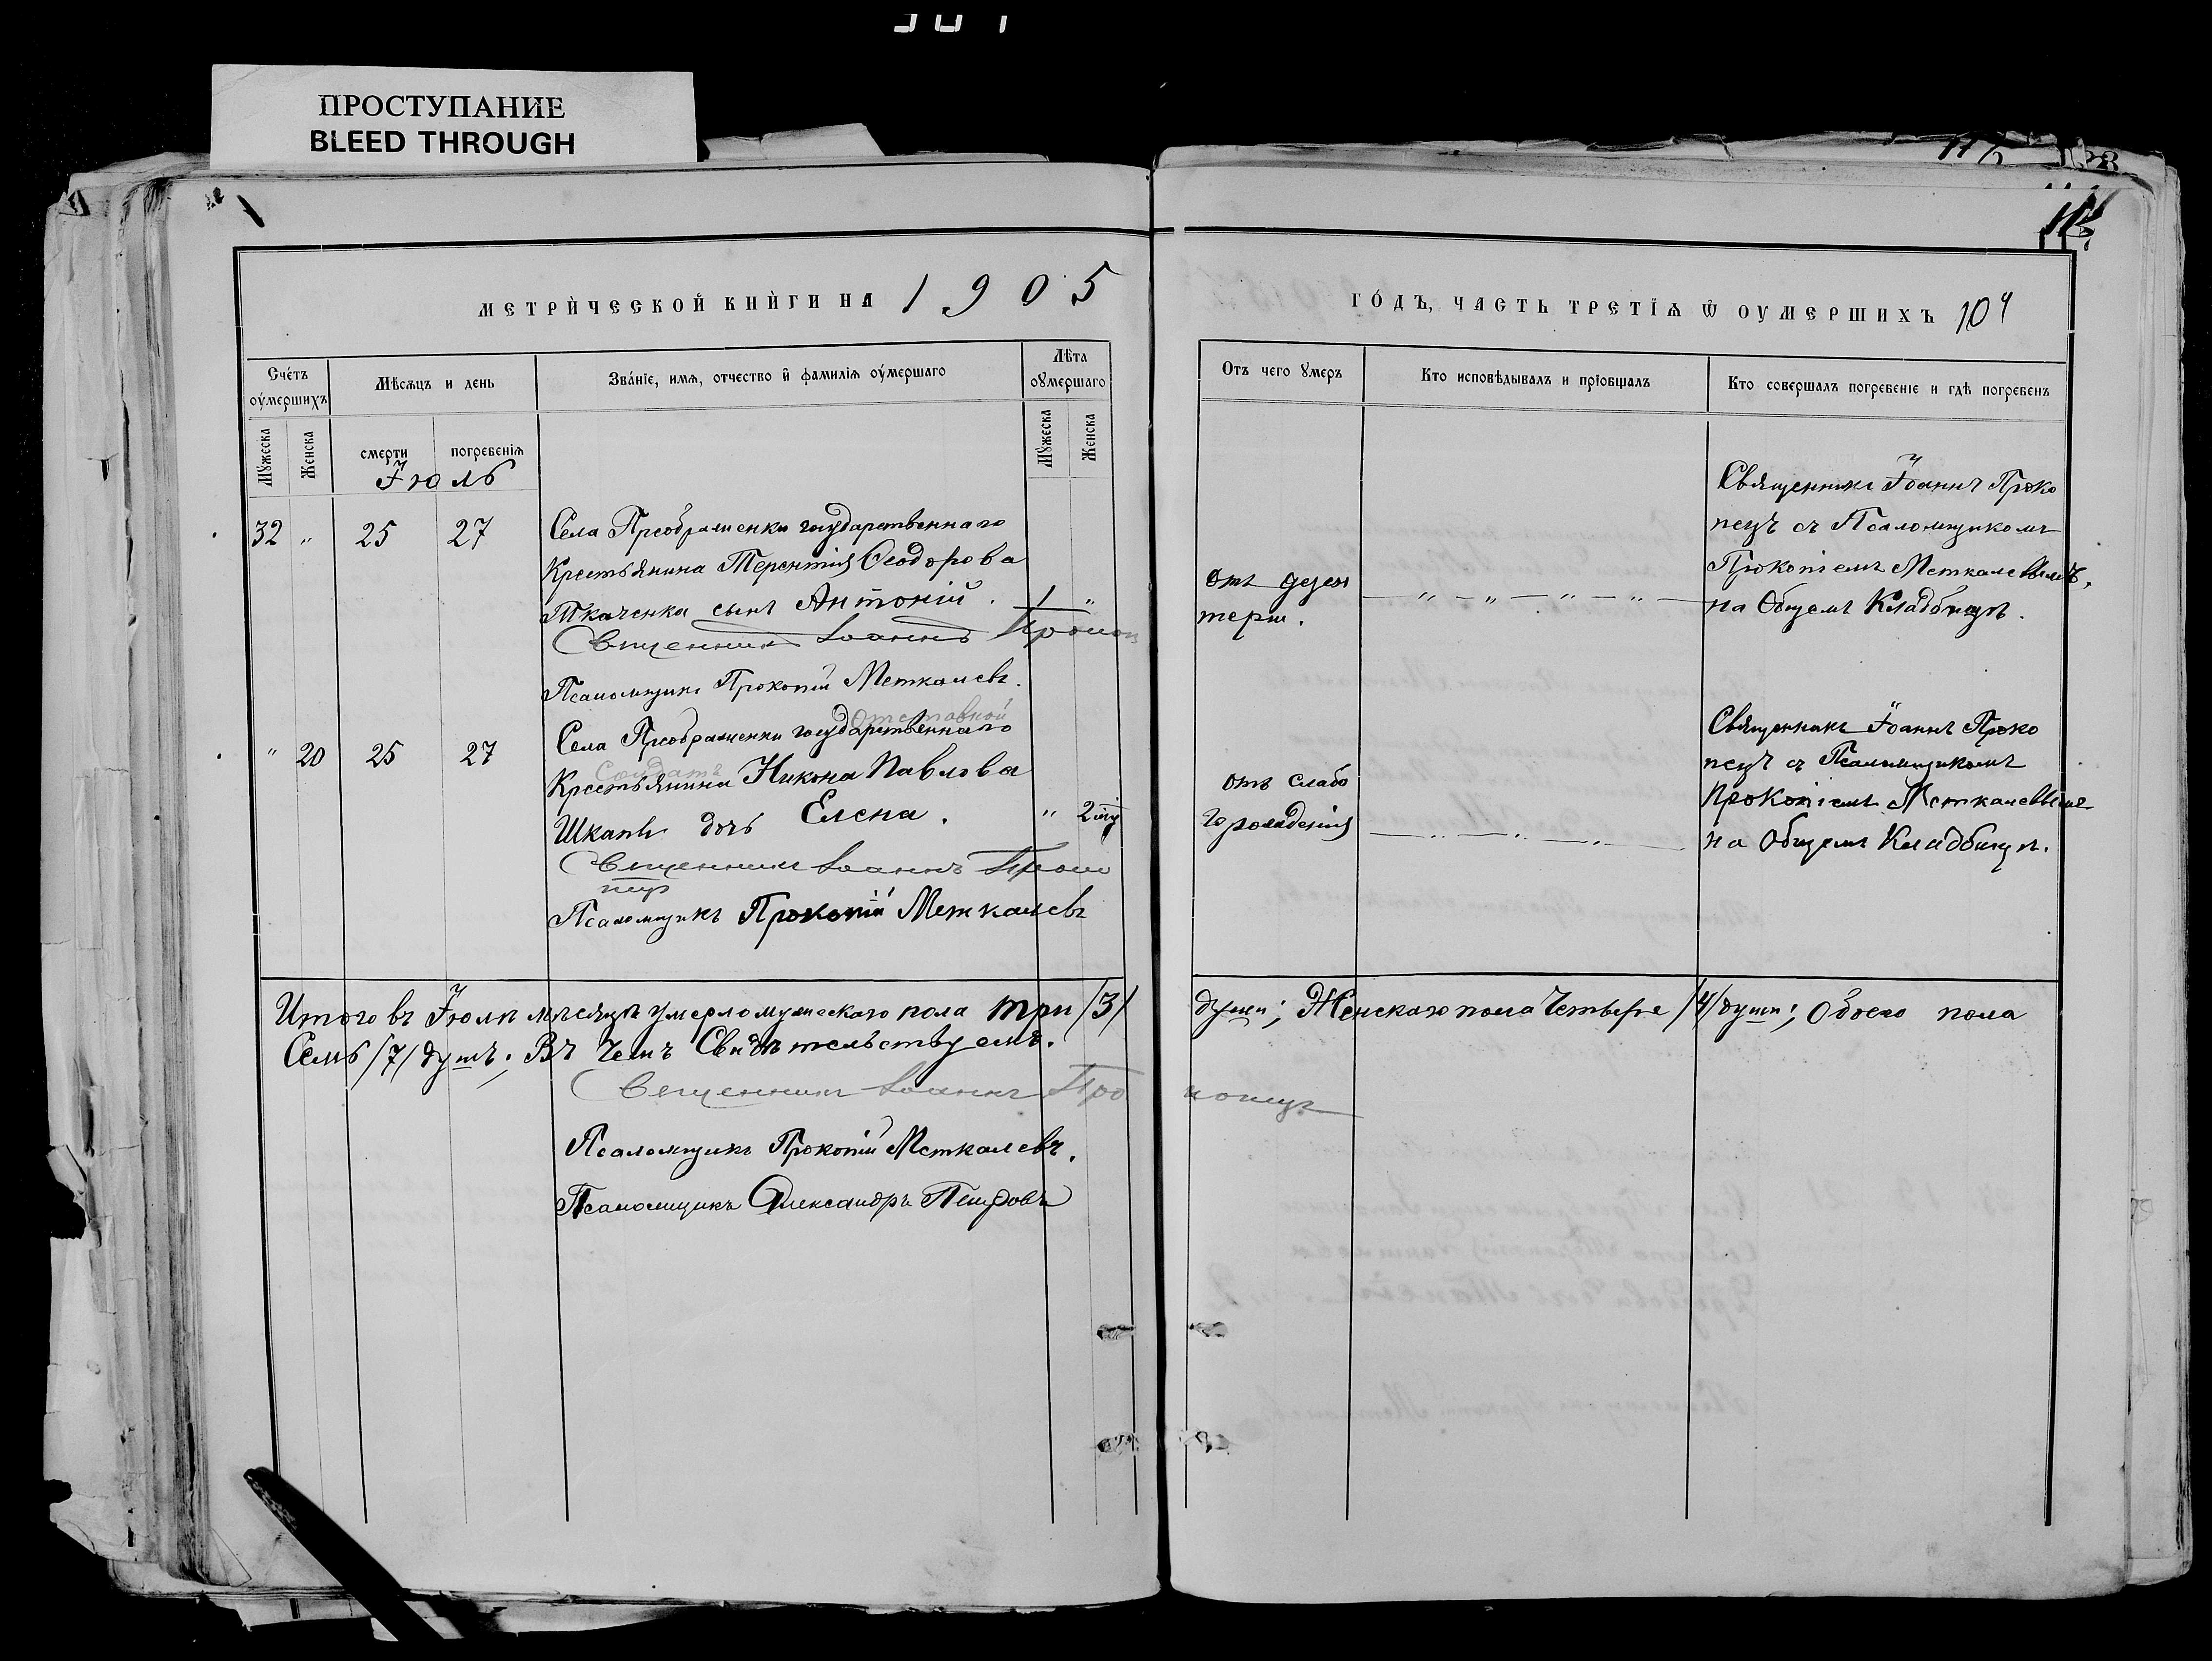 ПРОСТУПАНИЕ
BLEED THROUGH
МЕТРИЧЕСКОЙ КНИГИ НА 1905
ГОДЪ, ЧАСТЬ ТРЕТІѦ Ѿ ОУМЕРШИХЪ 104
Счетъ оумершихъ
Мѣсяцъ и день
Званіе, имя, отчество и фамилія оумершаго
Лѣта оумершаго
Отъ чего умеръ
Кто исповѣдывалъ и пріобщалъ
Кто совершалъ погребеніе и гдѣ погребенъ
Мужеска
Женска
смерти
погребенія
Мужеска
Женска
Іюль
32 " 25 27
Села Преображенки государственнаго
Крестьянина Терентія Ѳеодорова
Ткаченка сынъ Антоній. 1 "
Священникъ Іоаннъ
Псаломщикъ Прокопій Меткалевъ.
отъ дезен
теріи.
Священникъ Іоаннъ Проко
пецъ съ Псаломщикомъ
Прокопіемъ Меткалевымъ,
на Общемъ Кладбищѣ.
" 20 25 27
Отставной
Села Преображенки государственнаго
Солдатъ
Крестьянина Никона Павлова
дочь Елена. " 2
Священникъ Іоаннъ Проко
пецъ
Псаломщикъ Прокопій Меткалевъ
отъ слабо
го рожденія
Священникъ Іоаннъ Проко
пецъ съ Псаломщикомъ
Прокопіемъ Меткалевымъ
на Общемъ Кладбищѣ.
Итого въ Іюлѣ мѣсяцѣ умерло мужескаго пола три /3/ души; Женскаго пола Четыре /4/ души; Обоего пола
Семь /7/ душъ. Въ чемъ Свидѣтельствуемъ.
Священникъ Іоаннъ Прокопецъ
Псаломщикъ Прокопій Меткалевъ.
Псаломщикъ Александръ Петровъ